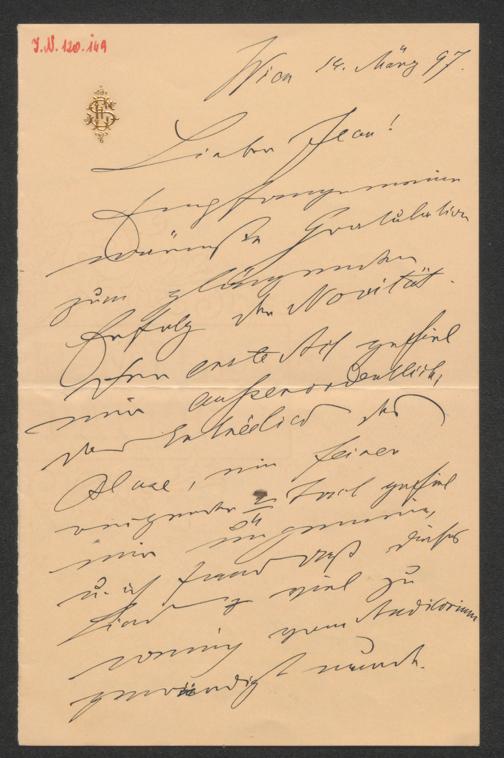 I.N. 120.149
Wien 14. März 97.
Lieber Jean!
Empfange meine
wärmste Gratulation
zum glänzenden
Erfolg der Novität.
Der erste Act gefiel
mir außerordentlich,
das Entréelied des
mit seiner
2/4 Takt gefiel
mir ungemein,
u. ich fand daß dieses
Lied viel zu
wenig vom Auditorium
gewürdigt wurde.